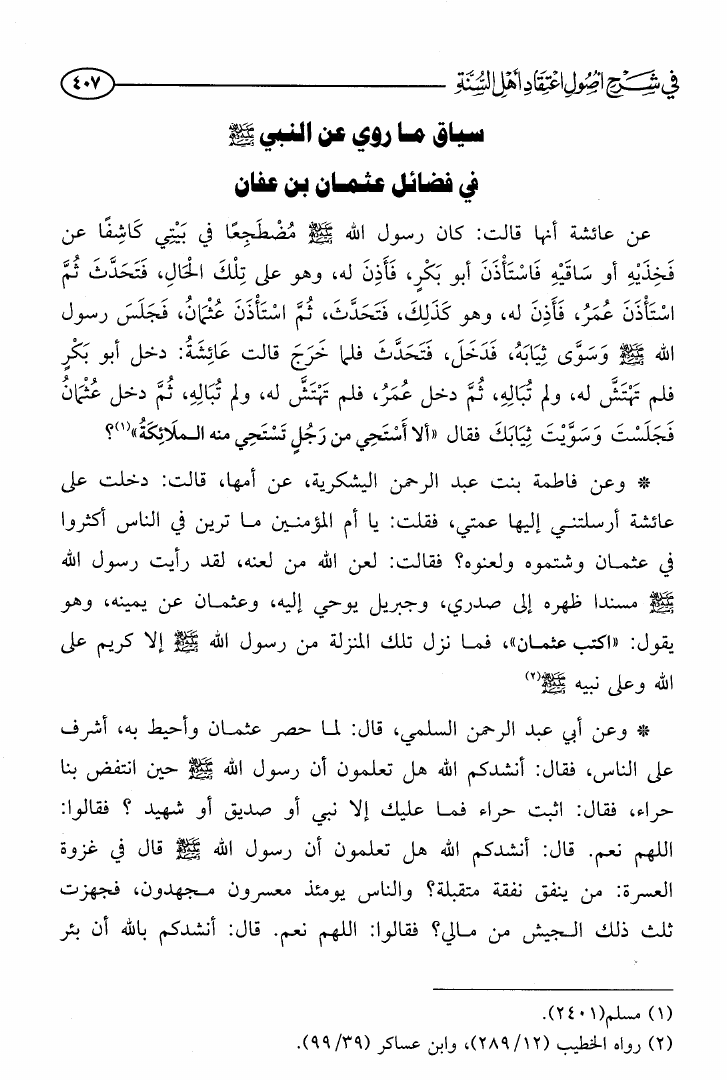 في شرح أصول اعتقاد أهل السنة
٤٠٧
سياق ما روي عن النبي ﷺ
في فضائل عثمان بن عفان
عن عائشة أنها قالت: كان رسول الله ﷺ مُضْطَجِعًا في بَيْتِي كَاشِفًا عن
فَخِذَيْهِ أو سَاقَيْهِ فَاسْتَأْذَنَ أبو بَكْرٍ، فَأَذِنَ له، وهو على تِلْكَ الْحَالِ، فَتَحَدَّثَ ثُمَّ
اسْتَأْذَنَ عُمَرُ، فَأَذِنَ له، وهو كَذَلِكَ، فَتَحَدَّثَ، ثُمَّ اسْتَأْذَنَ عُثْمَانُ، فَجَلَسَ رسول
الله ﷺ وَسَوَّى ثِيَابَهُ، فَدَخَلَ، فَتَحَدَّثَ فلما خَرَجَ قالت عَائِشَةُ: دخل أبو بَكْرٍ
فلم تَهْتَشَّ له، ولم تُبَالِهِ، ثُمَّ دخل عُمَرُ، فلم تَهْتَشَّ له، ولم تُبَالِهِ، ثُمَّ دخل عُثْمَانُ
فَجَلَسْتَ وَسَوَّيْتَ ثِيَابَكَ فقال «ألا أَسْتَحِي من رَجُلٍ تَسْتَحِي منه الـملَائِكَةُ»(١)؟
* وعن فاطمة بنت عبد الرحمن اليشكرية، عن أمها، قالت: دخلت على
عائشة أرسلتني إليها عمتي، فقلت: يا أم المؤمنين ما ترين في الناس أكثروا
في عثمان وشتموه ولعنوه؟ فقالت: لعن الله من لعنه، لقد رأيت رسول الله
ﷺ مسندا ظهره إلى صدري، وجبريل يوحي إليه، وعثمان عن يمينه، وهو
يقول: «اكتب عثمان»، فما نزل تلك المنزلة من رسول الله ﷺ إلا كريم على
الله وعلى نبيه ﷺ(٢)
* وعن أبي عبد الرحمن السلمي، قال: لما حصر عثمان وأحيط به، أشرف
على الناس، فقال: أنشدكم الله هل تعلمون أن رسول الله ﷺ حين انتفض بنا
حراء، فقال: اثبت حراء فما عليك إلا نبي أو صديق أو شهيد ؟ فقالوا:
اللهم نعم. قال: أنشدكم الله هل تعلمون أن رسول الله ﷺ قال في غزوة
العسرة: من ينفق نفقة متقبلة؟ والناس يومئذ معسرون مجهدون، فجهزت
ثلث ذلك الجيش من مالي؟ فقالوا: اللهم نعم. قال: أنشدكم بالله أن بئر
(١) مسلم(٢٤٠١).
(٢) رواه الخطيب (٢٨٩/١٢)، وابن عساكر (٩٩/٣٩).